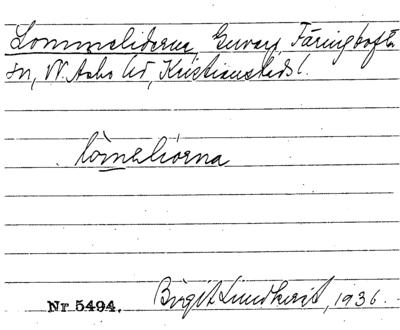 Lommeliderna, Gunvary, Färinghofta
sn, V. Asbo hd, Kristianstads l.
lòmelìorna
Nr 5494. Birgit Lundkvist, 1936.